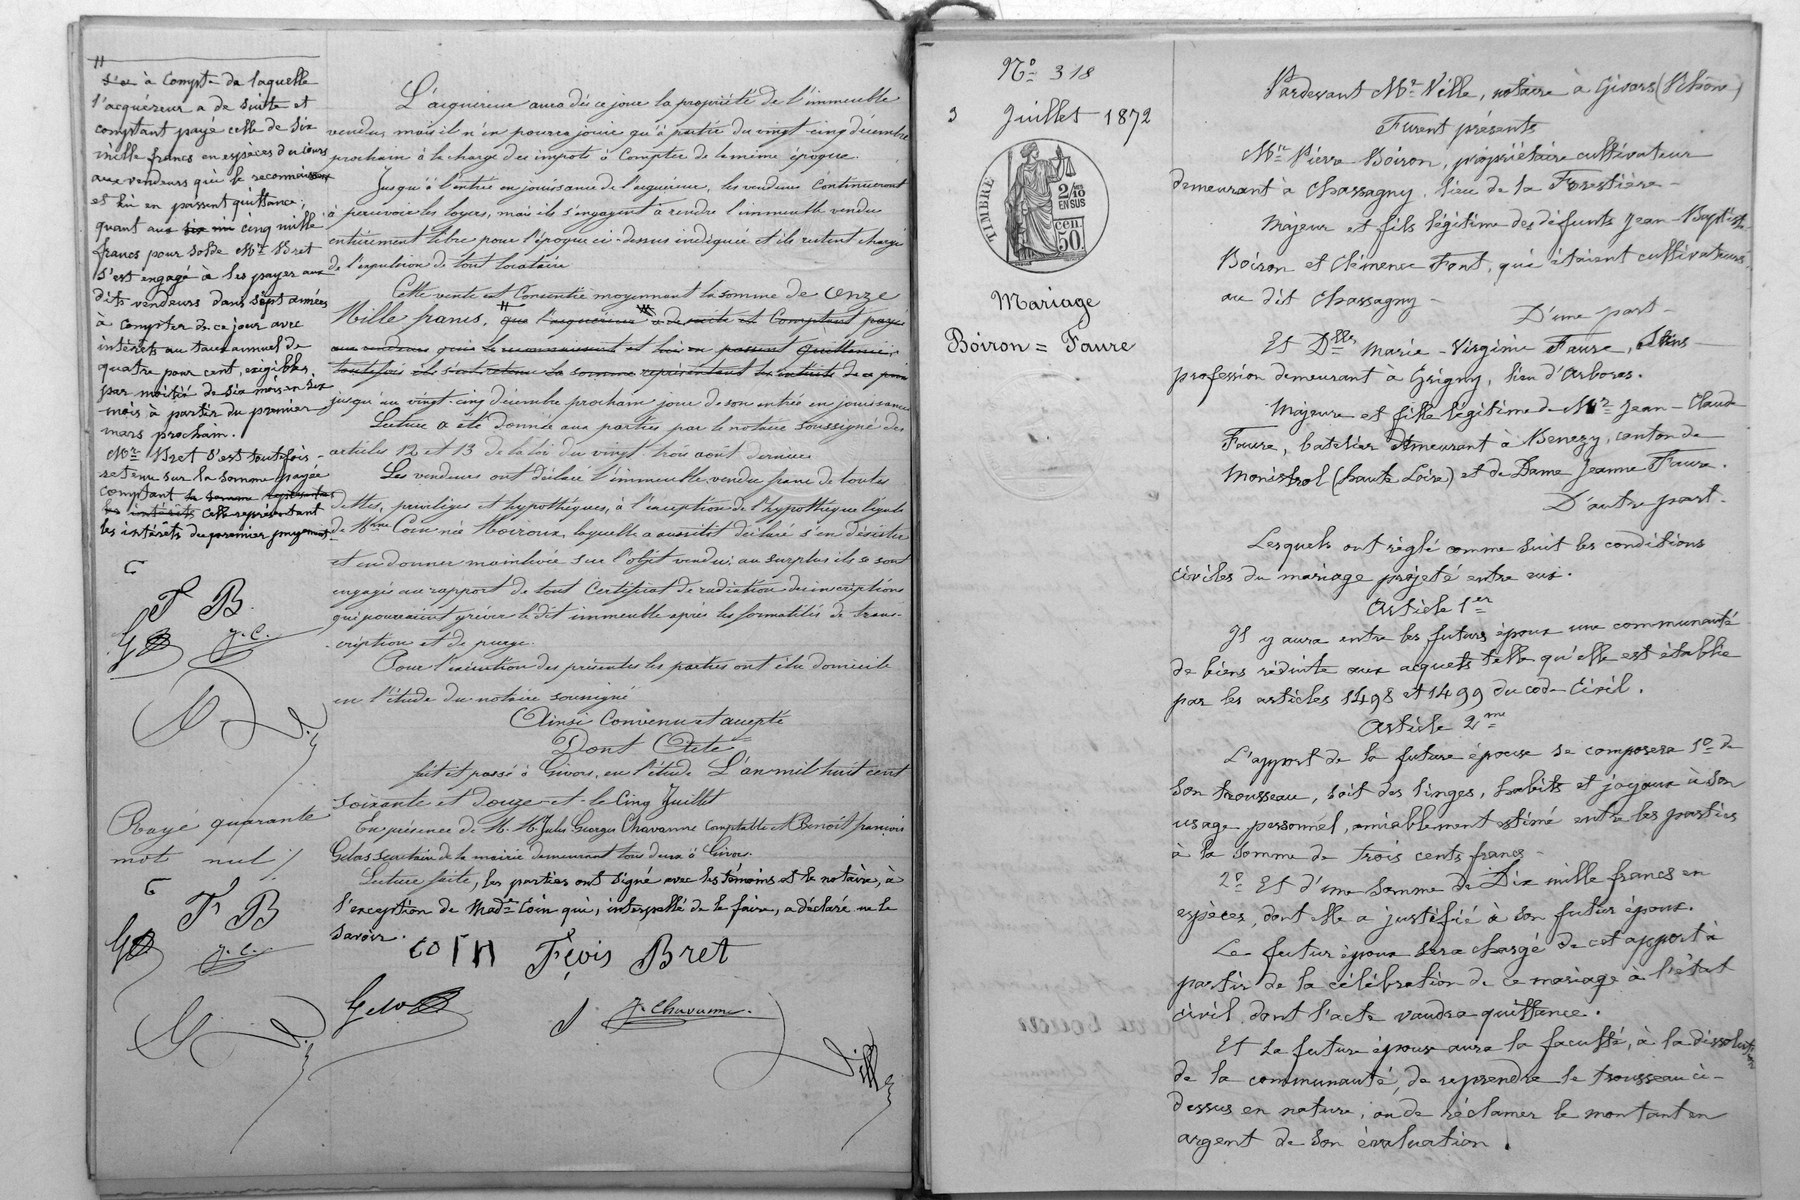 s'a à Compte de laquelle
l'acquéreur a de suite et
comptant payé celle de six
mille francs en espèces du cours
aux vendeurs qui le reconnaissent
et lui en passent quittance,
quant aux six mi cinq mille
francs pour solde Mr Bret
s'est engagé à les payer aux
dits vendeurs dans sept années
à compter de ce jour avec
intérêts au taux annuel de
quatre pour cent, exigibles
par moitié de six mois en six
mois à partir du premier
mars prochain.
Mr Bret s'est toutefois
retenu sur la somme payée
comptant la somme représentant
les intérêts celle représentant
les intérêts du premier payement
F B.
J. C.
Rayé quarante
mots nuls
F B
J. C.
L'acquéreur aura dès ce jour la propriété de l'immeuble
vendu, mais il n'en pourra jouir qu'à partir du vingt-cinq décembre
prochain à la charge des impôts à Compter de la même époque.
Jusqu'à l'entrée en jouissance de l'acquéreur, les vendeurs Continueront
à percevoir les loyers, mais ils s'engagent à rendre l'immeuble vendu
entièrement libre pour l'époque ci-dessus indiquée et ils restent chargés
de l'expulsion de tout locataire
Cette vente est Consentie moyennant la somme de Onze
Mille francs, que l'acquéreur a de suite et Comptant payé
aux vendeurs qui le reconnaissent et lui en passent Quittance,
toutefois il s'est retenu la somme représentant les intérêts de ce jour
jusqu'au vingt-cinq décembre prochain jour de son entrée en jouissance
Lecture a été donnée aux parties par le notaire soussigné des
articles 12 et 13 de la loi du vingt trois août dernier
Les vendeurs ont déclaré l'immeuble vendu franc de toutes
dettes, privilèges et hypothèques, à l'exception de l'hypothèque légale
de Mme Coin née Moiroux, laquelle a aussitôt déclaré s'en désister
et en donner mainlevée sur l'objet vendu; au surplus ils se sont
engagés au rapport de tout Certificat de radiation des inscriptions
qui pourraient grever ledit immeuble après les formalités de trans-
cription et de purge.
Pour l'exécution des présentes les parties ont élu domicile
en l'étude du notaire soussigné
Ainsi Convenu et accepté
Dont Acte
fait et passé à Givors, en l'étude L'an mil huit cent
soixante et douze et le Cinq Juillet
En présence de M. M. Jules Georges Chavanne comptable et Benoît françois
Gelas secrétaire de la mairie demeurant tous deux à Givors.
Lecture faite, les parties ont signé avec les témoins et le notaire, à
l'exception de Made Coin qui, interpellé de le faire, a déclaré ne le
savoir.
coin Fçois Bret
Gelas J. Chavanne.
Ville
No 318
3 Juillet 1872
TIMBRE
2/10
EN SUS
50 cen.
Mariage
Boiron = Faure
Pardevant Me Ville, notaire à Givors (Rhône)
Furent présents
Mr Pierre Boiron, propriétaire cultivateur
demeurant à Chassagny, lieu de la Forestière -
Majeur et fils légitime des défunts Jean-Baptiste
Boiron et Clémence Font, qui étaient cultivateurs
au dit Chassagny -
D'une part -
Et Dlle Marie-Virginie Faure, sans
profession demeurant à Grigny, lieu d'Arboras.
Majeure et fille légitime de Mr Jean-Claude
Faure, batelier demeurant à Benezy, canton de
Monistrol (haute Loire) et de Dame Jeanne Faure.
D'autre part.
Lesquels ont réglé comme suit les conditions
civiles du mariage projeté entre eux.
Article 1er
Il y aura entre les futurs époux une communauté
de biens réduite aux acquets telle qu'elle est établie
par les articles 1498 et 1499 du code Civil.
Article 2me
L'apport de la future épouse se composera 1o de
son trousseau, soit des linges, habits et joyaux à son
usage personnel, amiablement estimé entre les parties
à la somme de trois cents francs -
2o Et d'une somme de Dix mille francs en
espèces, dont elle a justifié à son futur époux.
Le futur époux sera chargé de cet apport à
partir de la célébration de ce mariage à l'état
civil, dont l'acte vaudra quittance.
Et la future épouse aura la faculté, à la dissolution
de la communauté, de reprendre le trousseau ci-
dessus en nature, ou de réclamer le montant en
argent de son évaluation.